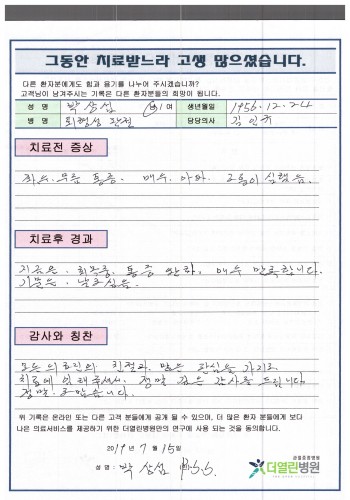 그동안 치료받느라 고생 많으셨습니다.
다른 환자분에게도 힘과 용기를 나누어 주시겠습니까?
고객님이 남겨주시는 기록은 다른 환자분들의 희망이 됩니다.
성 명 박상섭 남 / 여 생년월일 1956.12.24
병 명 퇴행성 관절 담당의사 김인규
치료전 증상
좌,우.무릎 통증. 매우. 아파. 고통이 심했음.
치료후 경과
지금은. 통증 매우 만족합니다.
기분은.
감사와 칭찬
모든 의료진의 친절과 많은 관심을 가지고
치료에 정말 깊은 감사를 드립니다
정말. 고맙습니다.
위 기록은 온라인 또는 다른 고객 분들에게 공개 될 수 있으며, 더 많은 환자 분들에게 보다
나은 의료서비스를 제공하기 위한 더열린병원만의 연구에 사용 되는 것을 동의합니다.
2019년 7월 15일
성 명 : 박상섭
관절종합병원
더열린병원